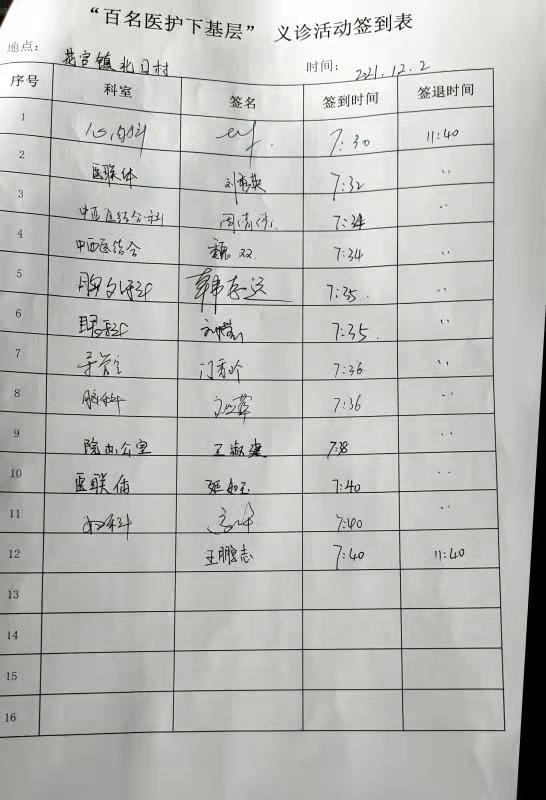 “百名医护下基层” 义诊活动签到表
地点： 镇北日村 时间： 2021.12.2
序号 科室 签名 签到时间 签退时间
1 心内科 7:30 11:40
2 医联体 刘秀英 7:32 〃
3 中西医结合科 7:34 〃
4 中西医结合 魏双 7:34 〃
5 胸外科 韩存运 7:35. 〃
6 眼科 7:35. 〃
7 门秀玲 7:36 〃
8 脑科 7:36 〃
9 院办公室 王淑建 7:38 〃
10 医联体 7:40 〃
11 7:40 〃
12 王鹏志 7:40 11:40
13
14
15
16